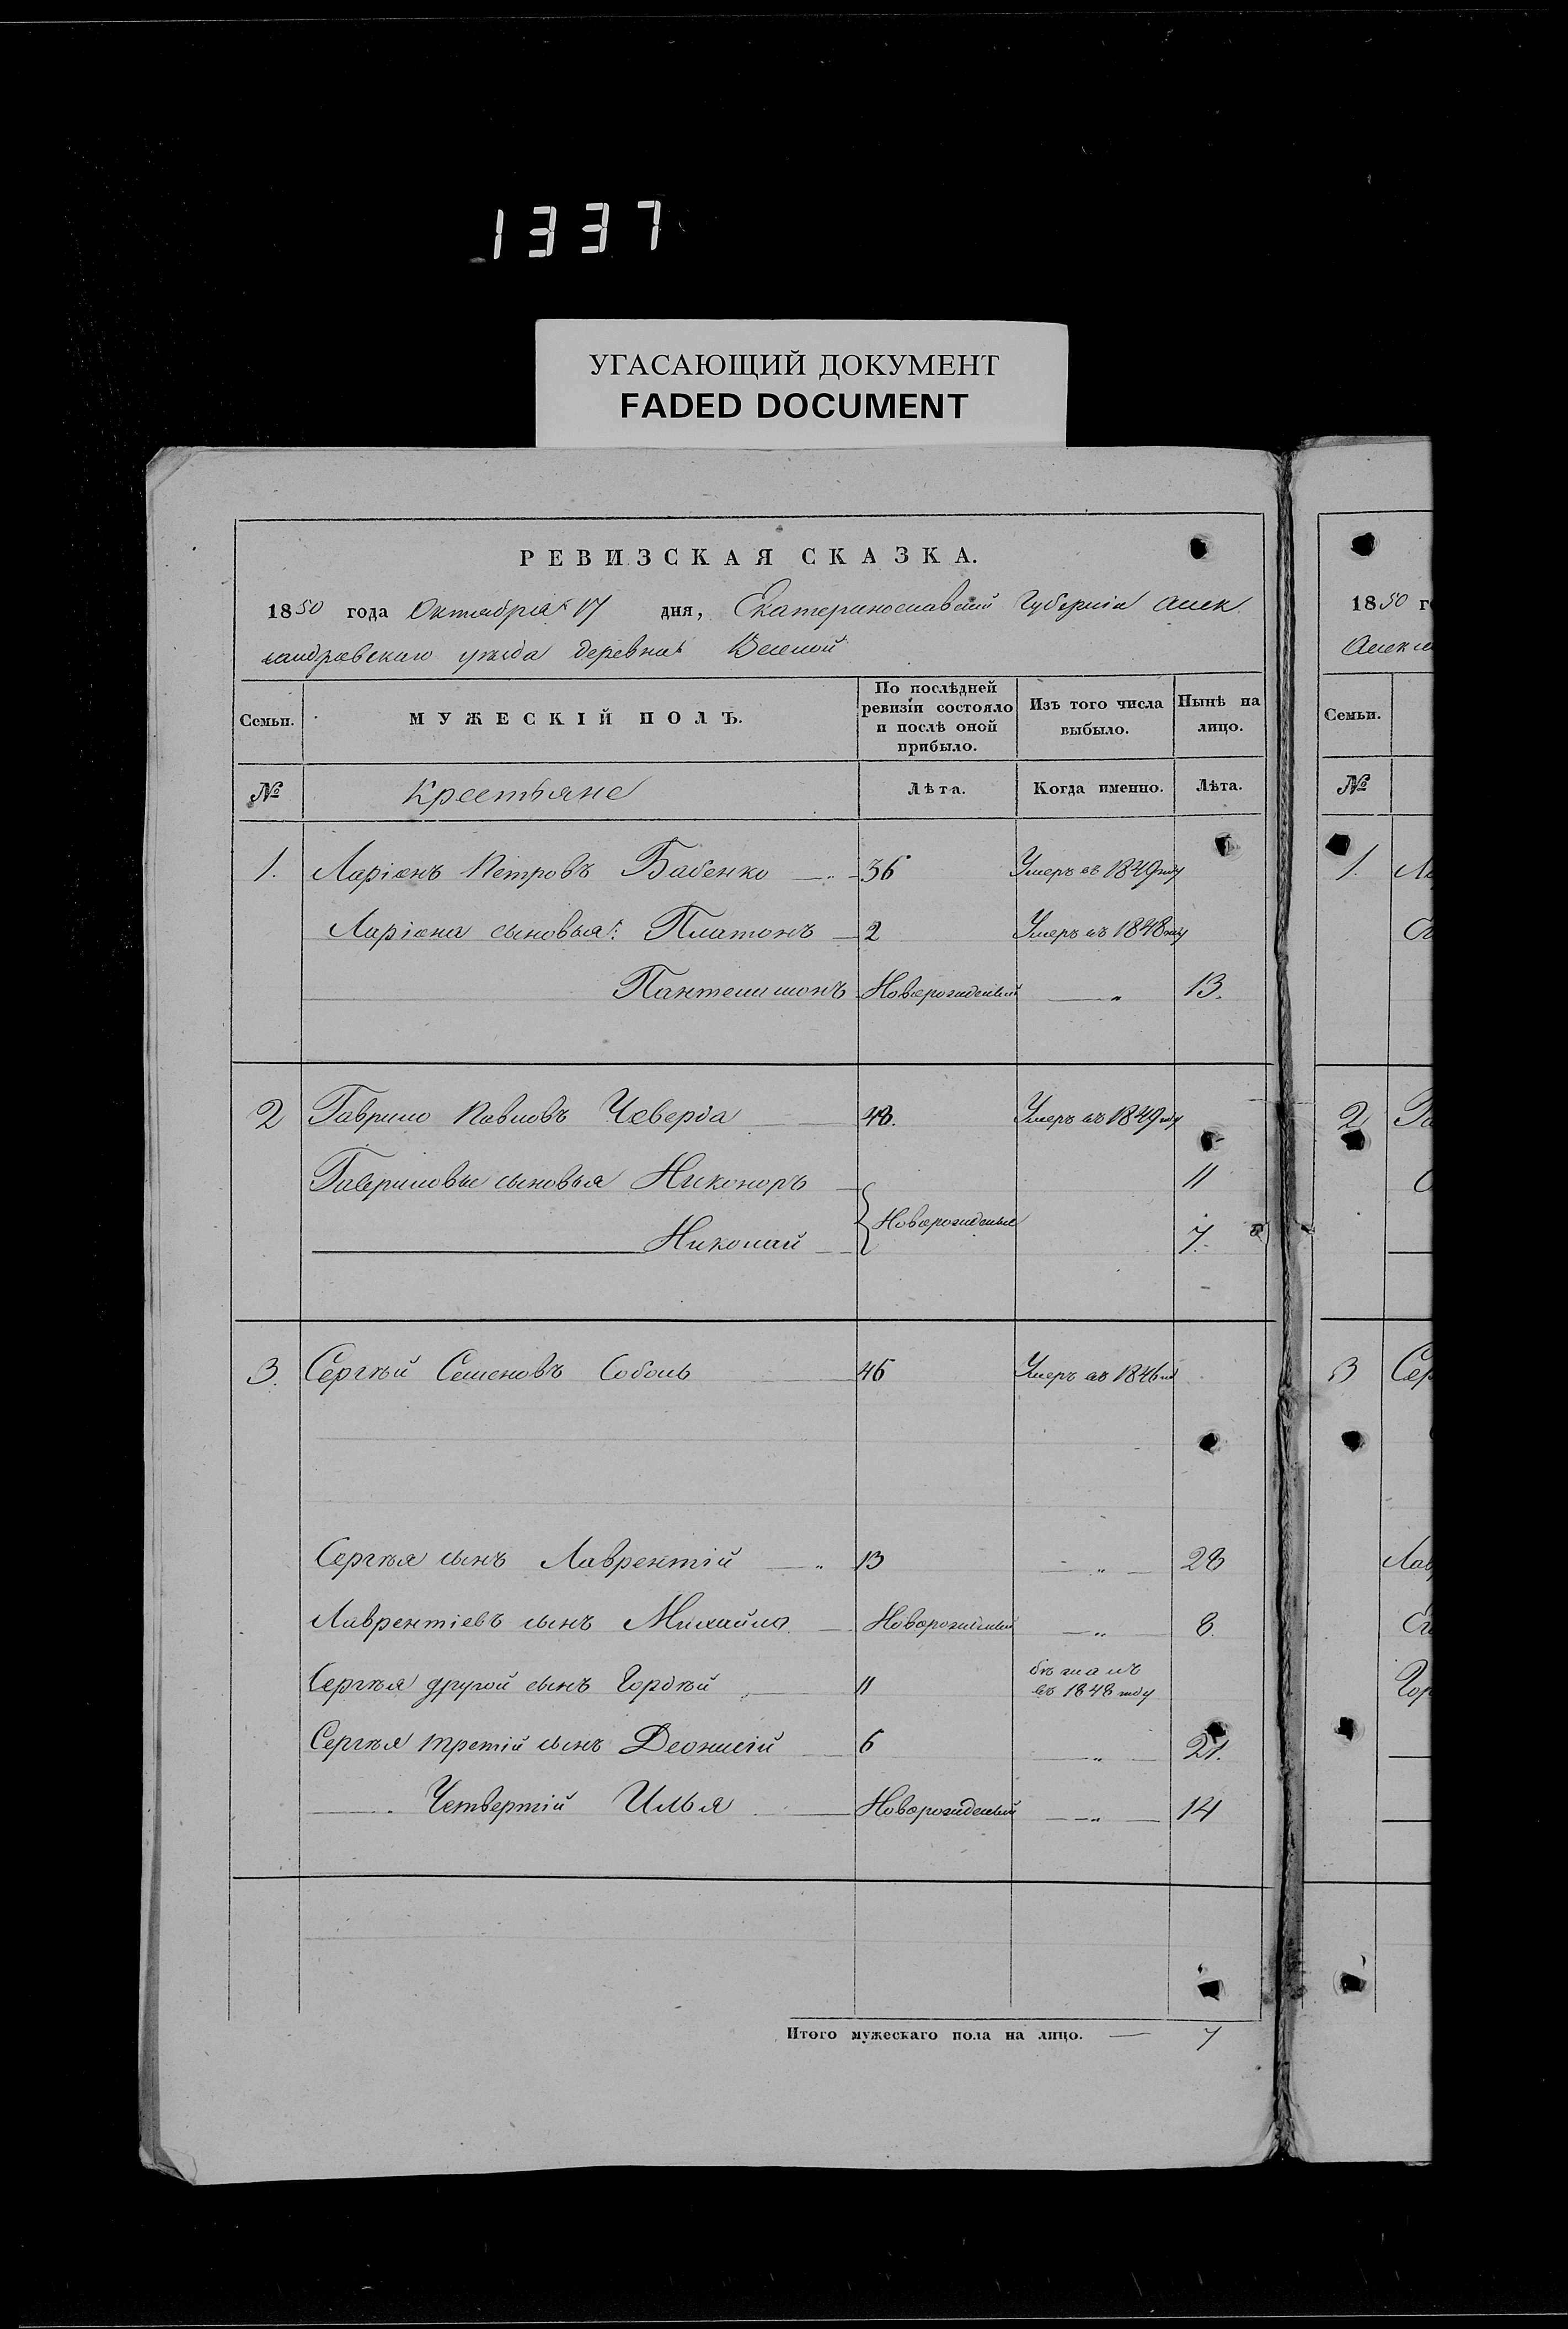 1337
УГАСАЮЩИЙ ДОКУМЕНТ
FADED DOCUMENT
РЕВИЗСКАЯ СКАЗКА.
1850 года Октября 17 дня, Екатеринославской Губерніи Алек
сандровскаго уѣзда деревни
Семьи. МУЖЕСКІЙ ПОЛЪ. По послѣдней ревизіи состояло и послѣ оной прибыло. Изъ того числа выбыло. Нынѣ на лицо.
№ Крестьяне Лѣта. Когда именно. Лѣта.
1. Ларіонъ Петровъ Бабенко 36 Умеръ въ 1849 году
Ларіона сыновья: Платонъ 2 Умеръ въ 1848 году
Пантелимонъ Новорожденный " 13.
2 Гаврило Павловъ Чеверда 48. Умеръ въ 1849 году
Гавриловы сыновья Никоноръ 11
Новорожденые
Николай 7.
3. Сергѣй Семеновъ Соболь 46 Умеръ въ 1846 го
Сергѣя сынъ Лаврентій " 13 " 28
Лаврентіевъ сынъ Михайла Новорожденный " 8.
Сергѣя другой сынъ Гордѣй 11 бѣжалъ въ 1848 году
Сергѣя третій сынъ Деонисій 6 " 21.
Четвертій Илья Новорожденный " 14
Итого мужескаго пола на лицо. 7
1850 г
Алекса
Семьи.
№
1. Ла
2 Га
3 Сер
Лав
Гор